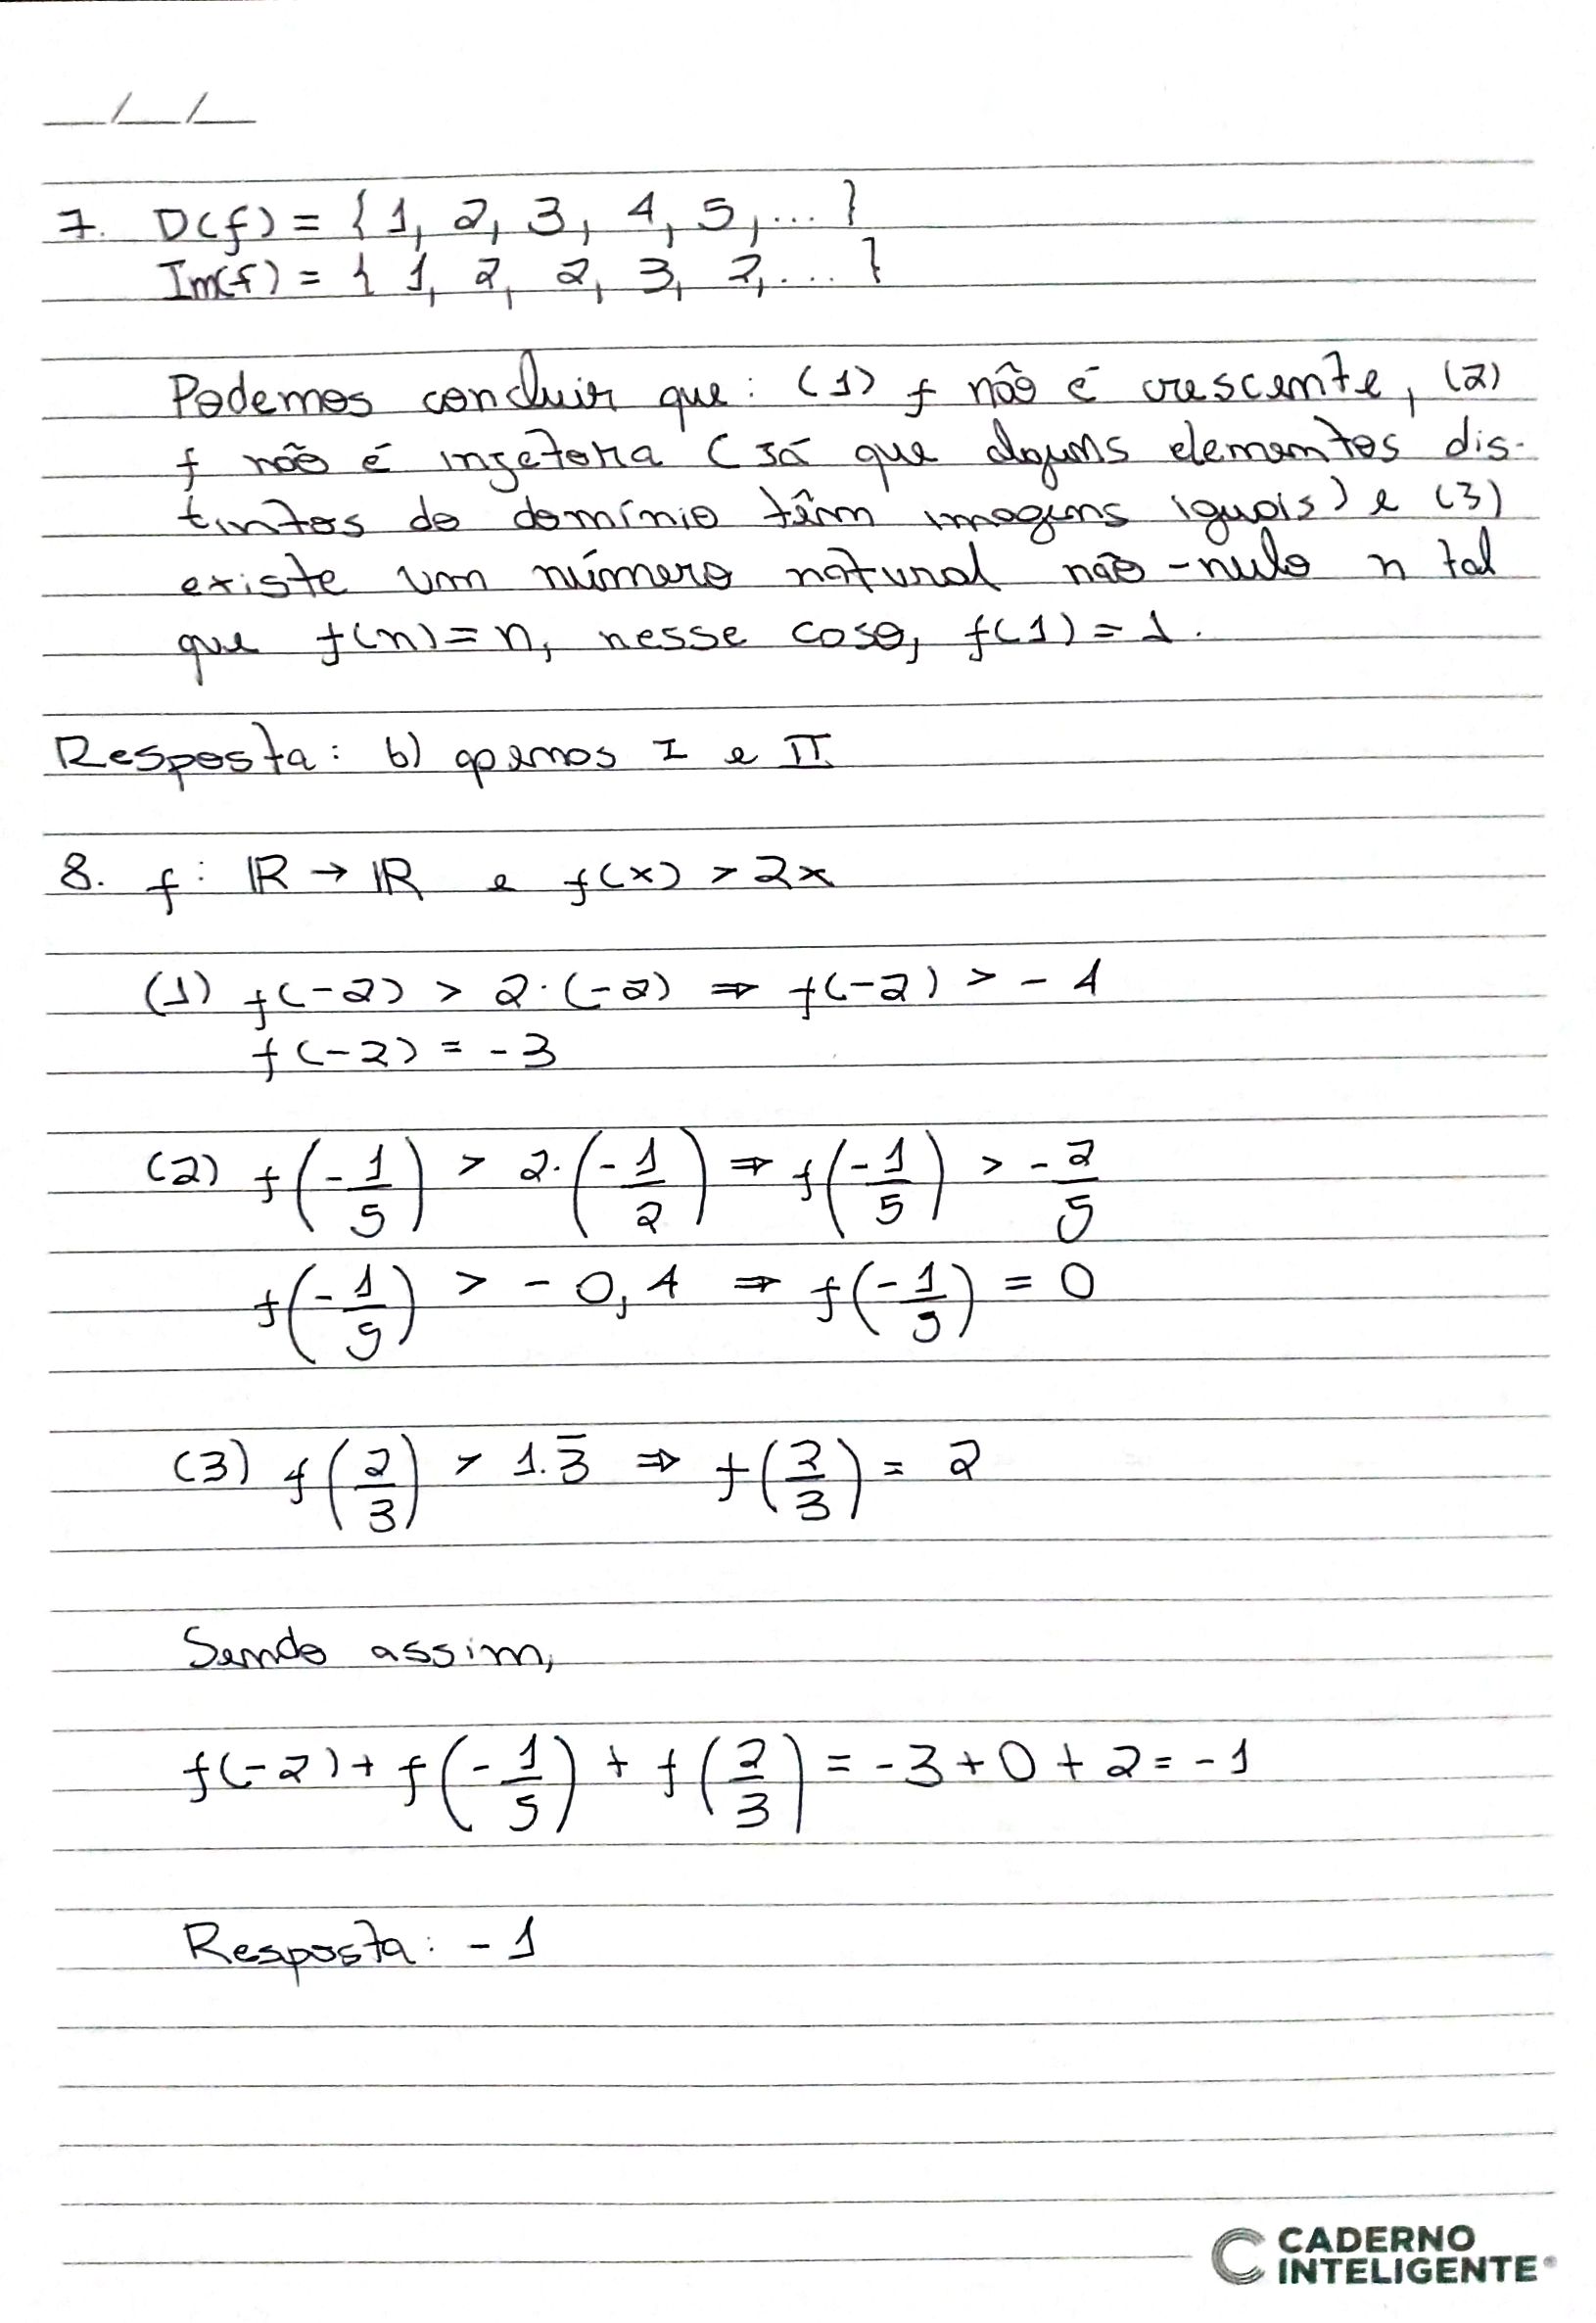 __/__/__
7. D(f) = { 1, 2, 3, 4, 5, ... }
Im(f) = { 1, 2, 2, 3, 2, ... }
Podemos concluir que: (1) f não é crescente, (2)
f não é injetora (já que alguns elementos dis-
tintos do domínio têm imagens iguais) e (3)
existe um número natural não-nulo n tal
que f(n) = n, nesse caso, f(1) = 1.
Resposta: b) apenas I e II
8. f: ℝ → ℝ e f(x) > 2x
(1) f(-2) > 2·(-2) ⇒ f(-2) > -4
f(-2) = -3
(2) f(-1/5) > 2·(-1/2) ⇒ f(-1/5) > -2/5
f(-1/5) > -0,4 ⇒ f(-1/5) = 0
(3) f(2/3) > 1.3̅ ⇒ f(2/3) = 2
Sendo assim,
f(-2) + f(-1/5) + f(2/3) = -3 + 0 + 2 = -1
Resposta: -1
CADERNO
INTELIGENTE®